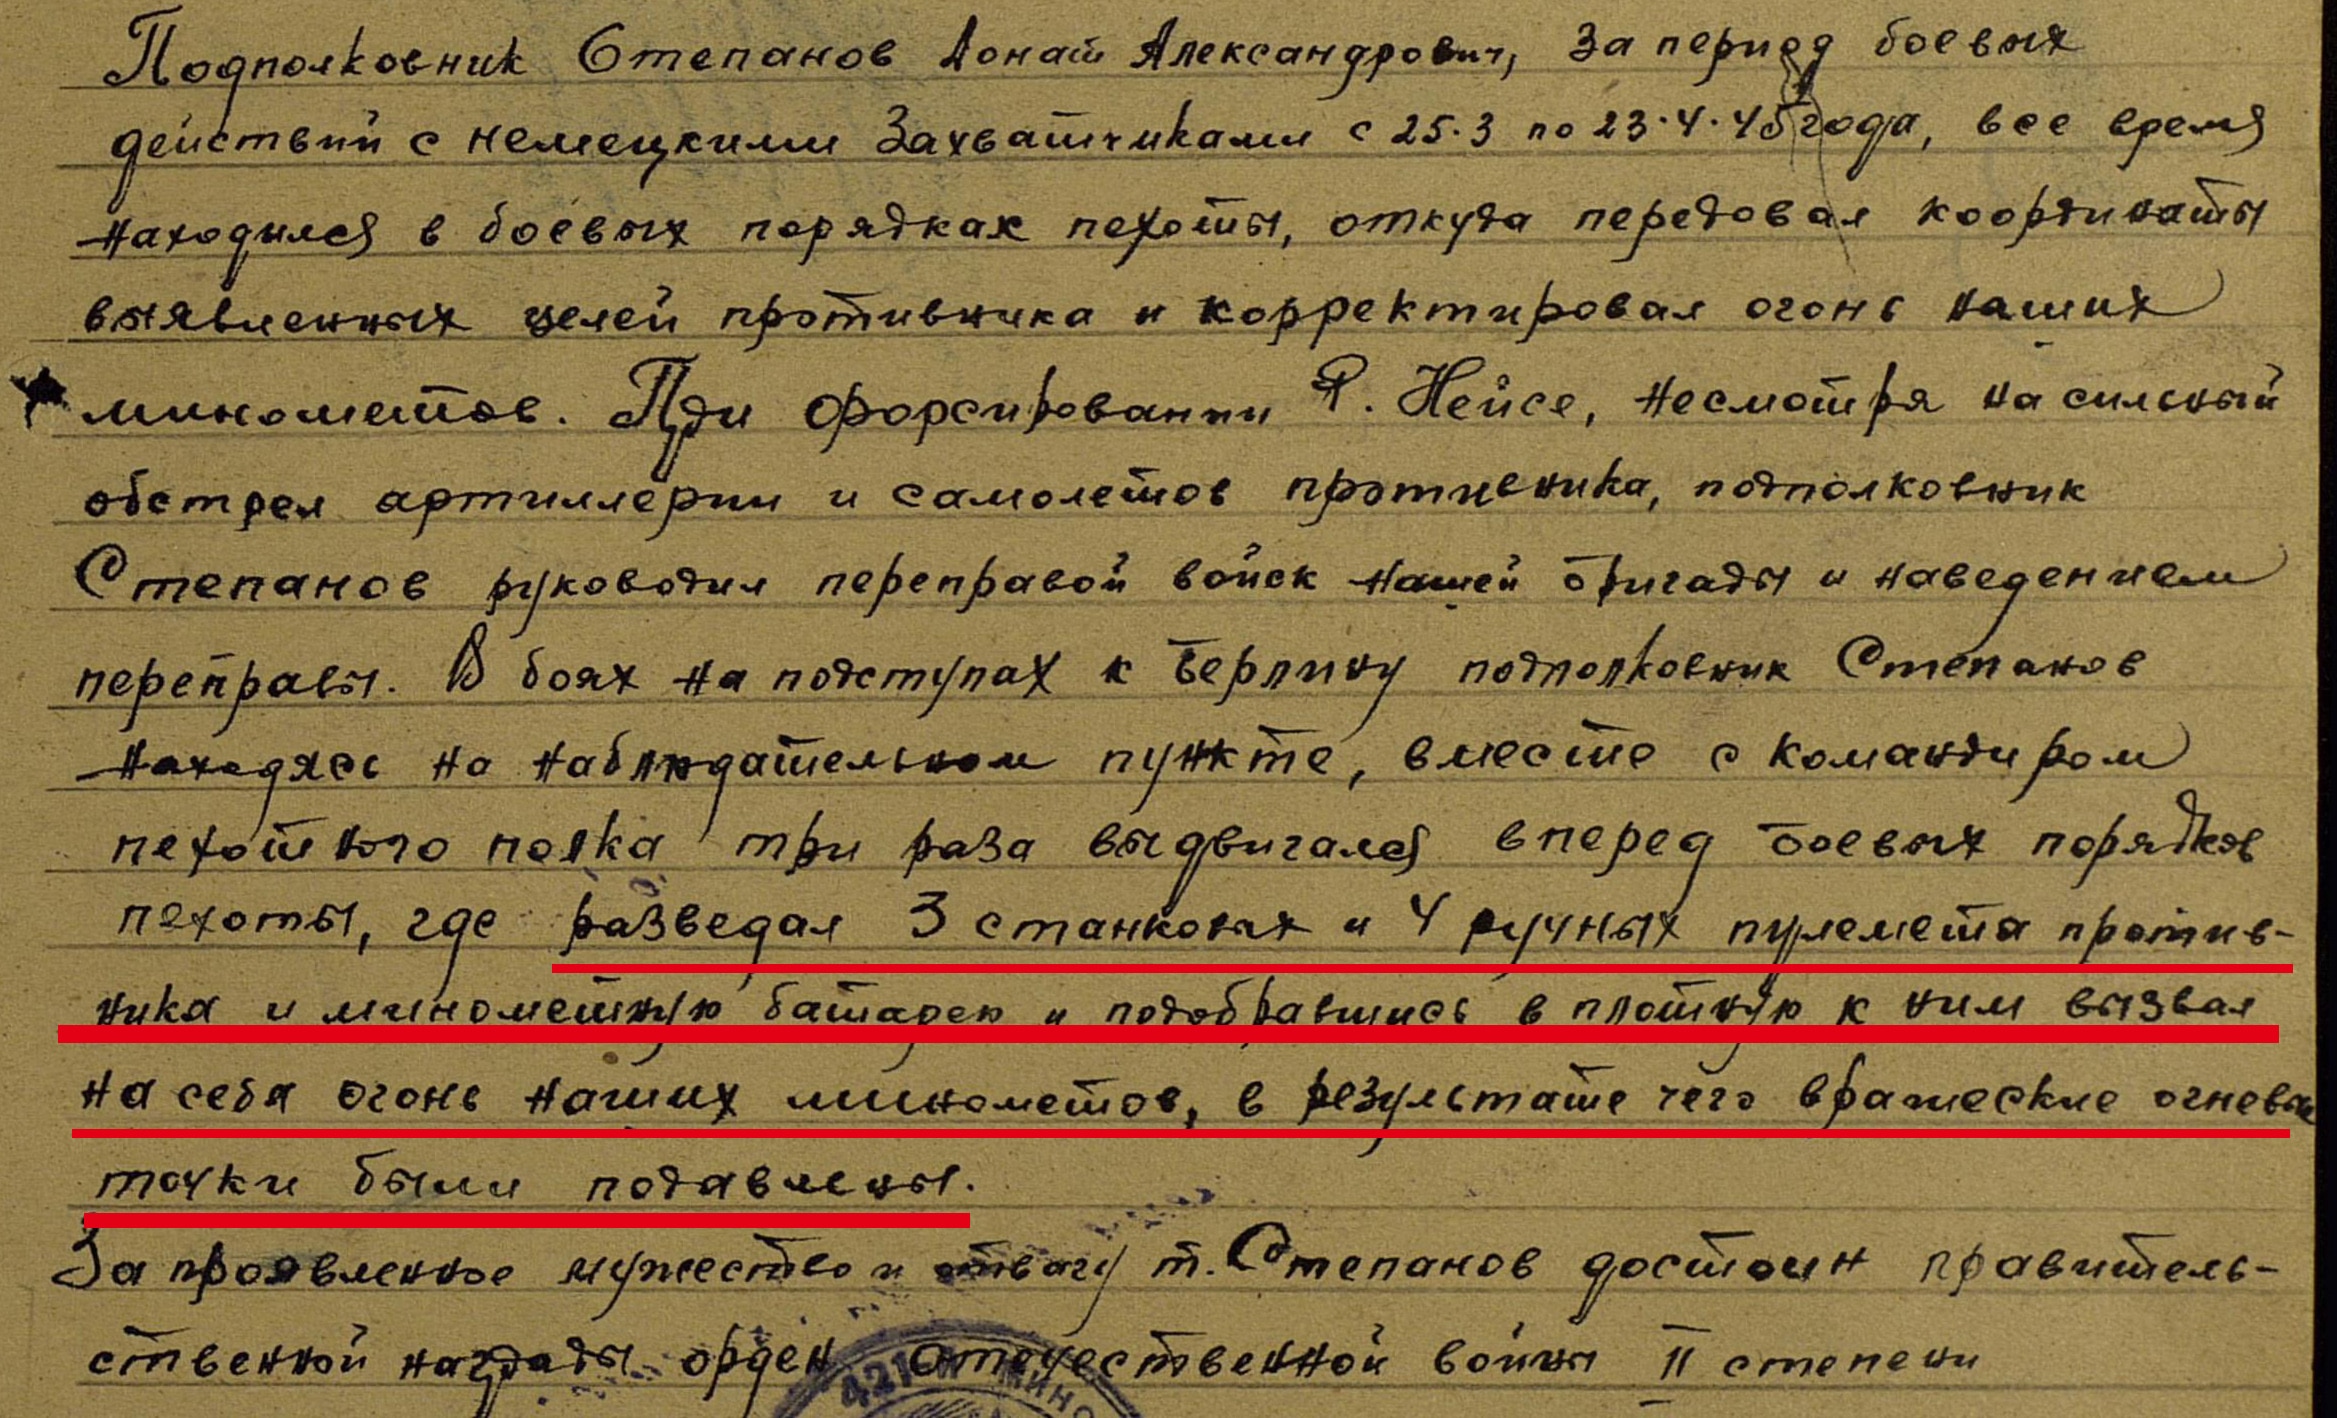 Подполковник Степанов Донат Александрович, за период боевых
действий с немецкими захватчиками с 25.3 по 23.4.45 года, все время
находился в боевых порядках пехоты, откуда передовал координаты
выявленных целей противника и корректировал огонь наших
минометов. При форсировании р. Нейсе, несмотря на сильный
обстрел артиллерии и самолетов противника, подполковник
Степанов руководил переправой войск нашей бригады и наведением
переправы. В боях на подступах к Берлину подполковник Степанов
находясь на наблюдательном пункте, вместе с командиром
пехотного полка три раза выдвигался вперед боевых порядков
пехоты, где разведал 3 станковых и 4 ручных пулемета против-
ника и минометную батарею и подобравшись в плотную к ним вызвал
на себя огонь наших минометов, в результате чего вражеские огневые
точки были подавлены.
За проявленное мужество и отвагу т. Степанов достоин правитель-
ственной награды орден Отечественной войны II степени
421 МИНО